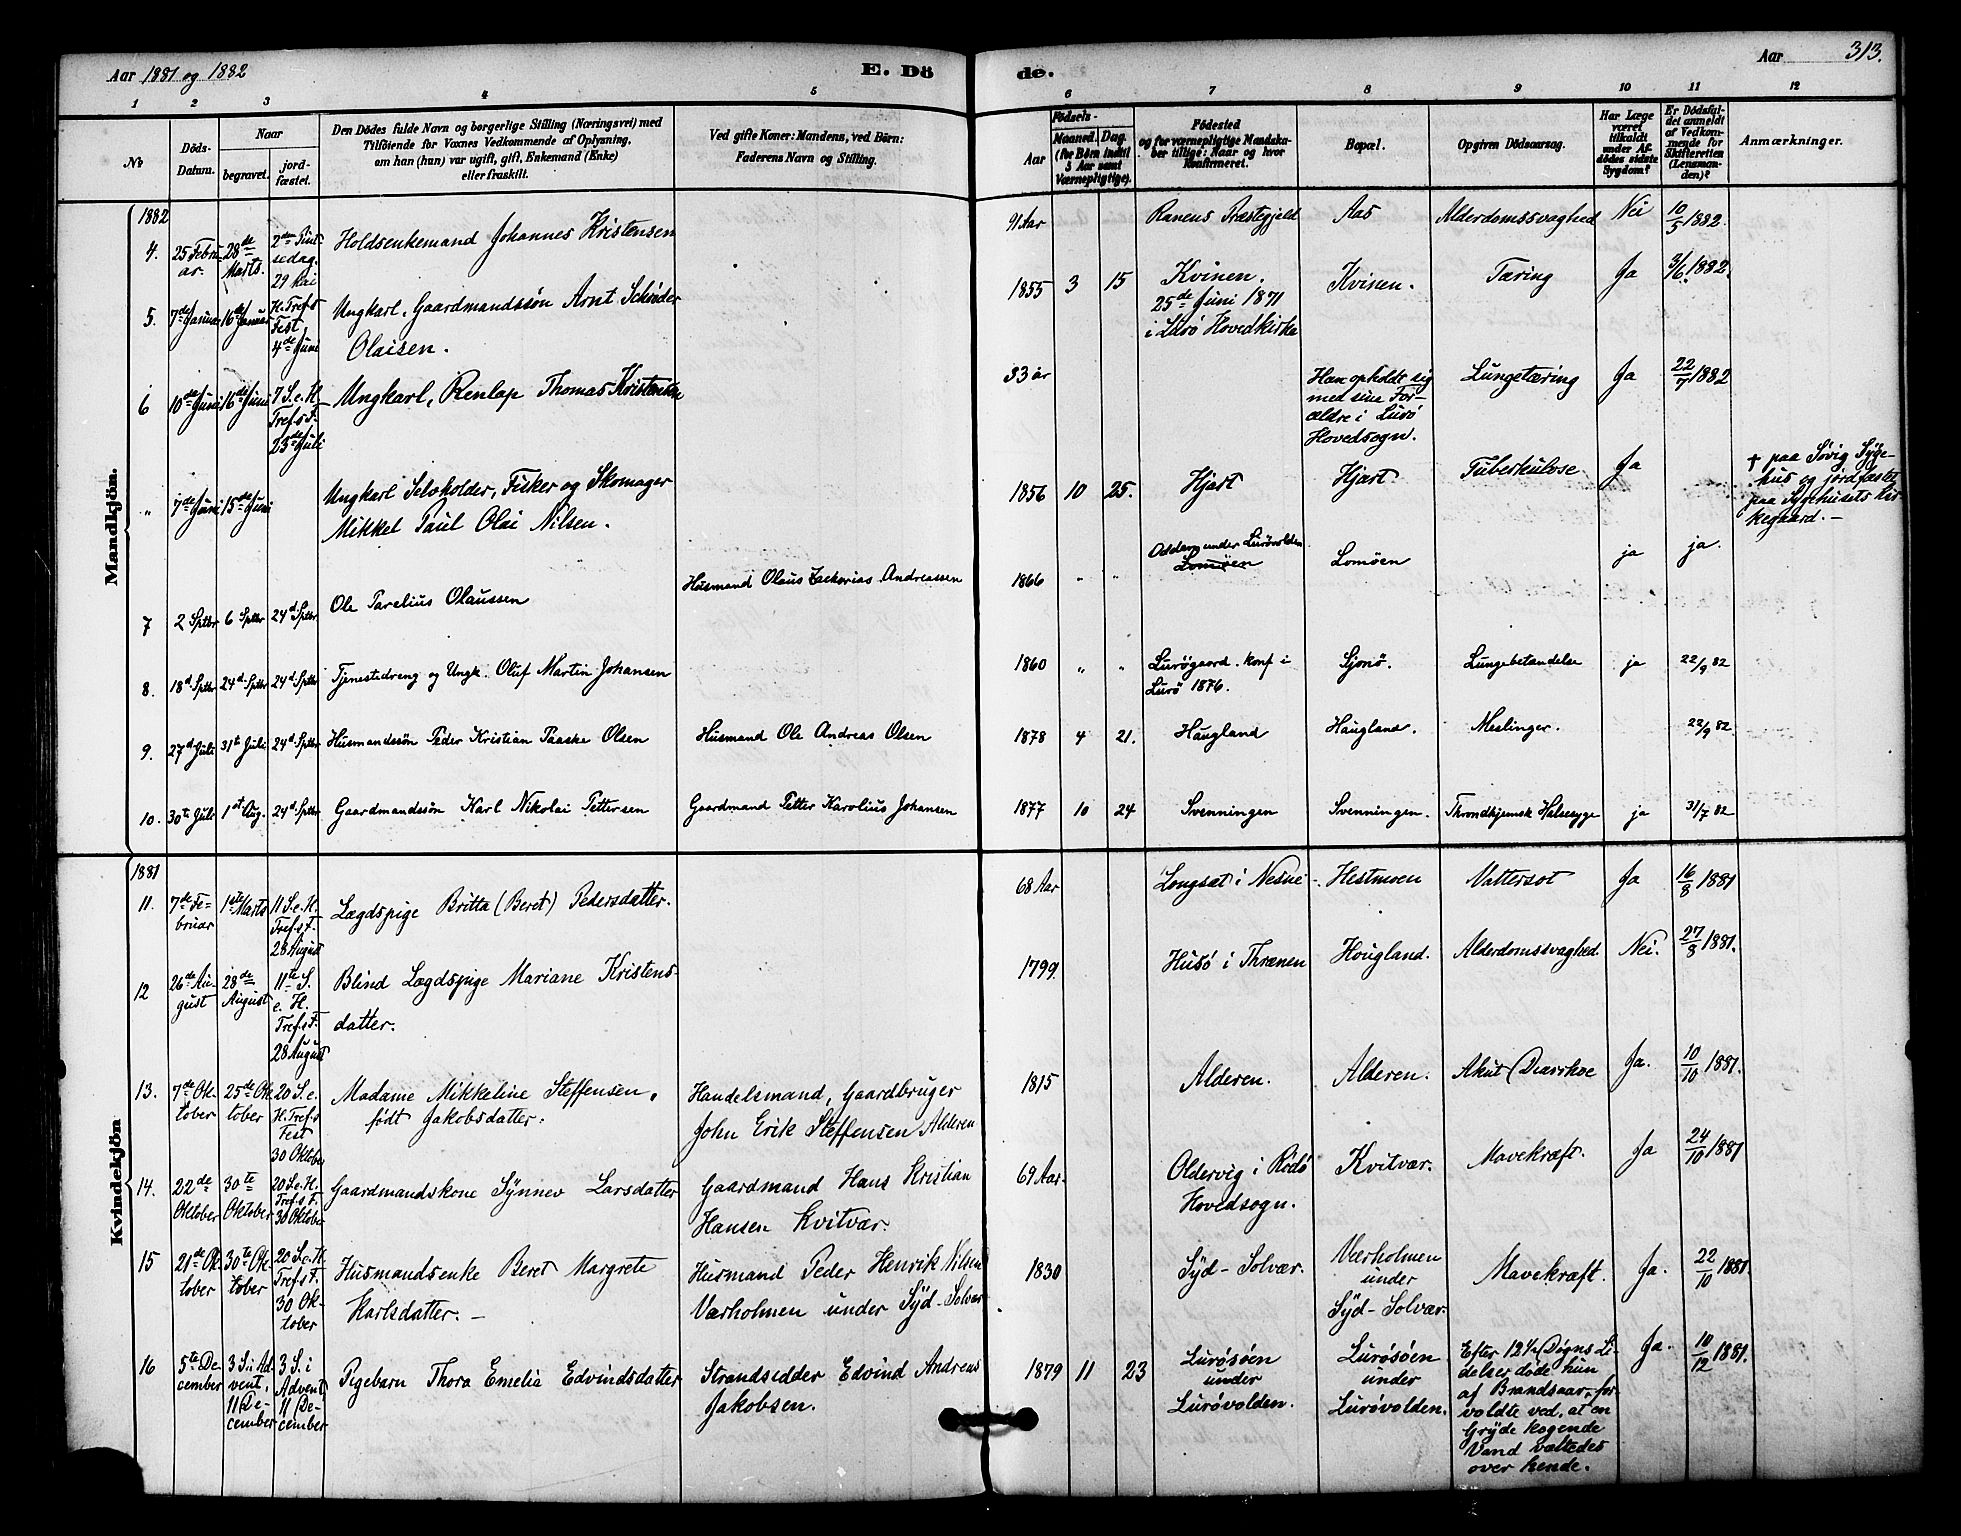 Aar 1881 og 1882
E. Dö
de.
Aar 313.
1 2 3 4 5 6 7 8 9 10 11 12
No
Döds-
Datum.
Naar
begravet.
jord-
fæstet.
Den Dödes fulde Navn og borgerlige Stilling (Næringsvei) med
Tilföiende for Voxnes Vedkommende af Oplysning,
om han (hun) var ugift, gift, Enkemand (Enke)
eller fraskilt.
Ved gifte Koner: Mandens, ved Börn:
Faderens Navn og Stilling.
Födsels-
Aar
Maaned. Dag.
(for Börn indtil
5 Aar samt
Værnepligtige).
Födested
og for værnepligtige Mandska-
ber tillige: Naar og hvor
Konfirmeret.
Bopæl.
Opgiven Dödsaarsag.
Har Læge
været
tilkaldt
under Af-
dödes sidste
Sygdom?
Er Dödsfal-
det anmeldt
af Vedkom-
mende for
Skifteretten
(Lensman-
den)?
Anmærkninger.
Mandkjön.
1882
4. 25 Febru-
ar.
28de
Marts.
2den Pint-
sedag.
29 Mai
Holdsenkemand Johannes Kristensen
91 Aar
Ranens Præstegjeld
Aas
Alderdomssvaghed
Nei
10/5 1882.
5. 7de Januar
16de Januar
H. Tref.s
Fest
4de Juni
Ungkarl, Gaardmandssön Arnt Schröder
Olaisen.
1855 3 15
Kvinen.
25de Juni 1871
i Lurö Hovedkirke
Kvinen.
Tæring
Ja
3/6 1882.
6 10de Juni
16de Juni
7 S. e. H.
Tref.s F.
23de Juli
Ungkarl, Renlap Thomas Kristensen
33 år
Han opholdt sig
med sine For-
ældre i Lurö
Hovedsogn.
Lungetæring
Ja
22/7 1882
" 7de Juni 15de Juni
Ungkarl Selvholder, Fisker og Skomager
Mikkel Paul Olai Nilsen.
1856 10 25.
Hjart
Hjart
Tuberkulose
Ja
† paa Søvig Syge-
hus og jordfæstet
paa Sygehusets Kir-
kegaard.-
7 2 Sptbr 6 Sptbr 24d Sptbr
Ole Parelius Olaussen
Husmand Olaus Zackarias Andreassen
1866 " "
Oddern under Lurövolden
Lomöen
Lomöen
ja
ja.
8. 18d Sptbr 24d Sptbr 24d Sptbr
Tjenestedreng og Ungk. Oluf Martin Johansen
1860 " "
Lurögaard. konf i
Lurö 1876.
Sjonö.
Lungebetændelse
ja
22/9 82
9. 27d Juli 31te Juli 24d Sptbr
Husmandssön Peder Kristian Paaske Olsen
Husmand Ole Andreas Olsen
1878 4 21.
Haugland
Haugland.
Meslinger.
22/9 82
10. 30te Juli 1st Aug. 24d Sptbr
Gaardmandssön Karl Nikolai Pettersen
Gaardmand Petter Karolius Johansen
1877 10 24
Svenningen
Svenningen.
Throndhjemsk Halssyge
ja
31/7 82
Kvindekjön
1881
11. 7de Fe-
bruar
1ste Marts
11 S. e. H.
Tref.s F.
28 August
Lægdspige Britta (Beret) Pedersdatter.
68 Aar
Longsæt i Nesne-
Hestmoen
Vattersot
Ja
16/8 1881
12 26de Au-
gust
28de
August
11te S.
e. H.
Tref.s F.
28 August
Blind Lægdspige Mariane Kristens-
datter.
1799.
Husö i Thrænen
Hougland.
Alderdomssvaghed.
Nei.
27/8 1881.
13. 7de Ok-
tober
25de Ok-
tober
20 S. e.
H. Tref.s
Fest
30 Oktober
Madame Mikkeline Steffensen,
født Jakobsdatter.
Handelsmand, Gaardbruger
John Erik Steffensen Alderen
1815
Alderen.
Alderen.
Akut Diarrhoe
Ja.
10/10 1881.
14. 22de
Oktober
30te
Oktober
20 S. e. H.
Tref.s F.
30 Oktober
Gaardmandskone Synnev Larsdatter
Gaardmand Hans Kristian
Hansen Kvitvær.
69 Aar.
Oldervig i Rödö
Hovedsogn.
Kvitvær.
Mavekræft.
Ja
24/10 1881
15 21de Ok-
tober
30te Ok-
tober
20 S. e. H.
Tref.s F.
30 Ok-
tober
Husmandsenke Beret Margrete
Karlsdatter.-
Husmand Peder Henrik Nilsen
Værholmen under Syd-Solvær
1830
Syd-Solvær.
Værholmen
under
Syd-Solvær.
Mavekræft.
Ja.
22/10 1881.
16 5te De-
cember
3 S. i Ad-
vent,
11 De-
cember
3 S. i
Advent
11 De-
cember
Pigebarn Thora Emelia Edvindsdatter
Strandsidder Edvind Andreas
Jakobsen.
1879 11 23
Lurösöen
under
Lurövolden.
Lurösöen
under
Lurövolden.
Efter 12½ Døgns Li-
delser døde hun
af Brandsaar, for-
voldte ved, at en
Gryde kogende
Vand væltedes
over hende.
Ja.
10/12 1881.